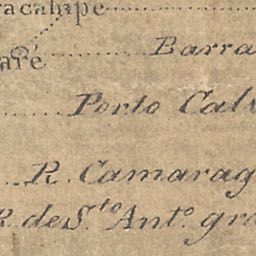 racahipe
Barra
aré
Porto Calv
R. Camarag
R. de S.to Anto. gra